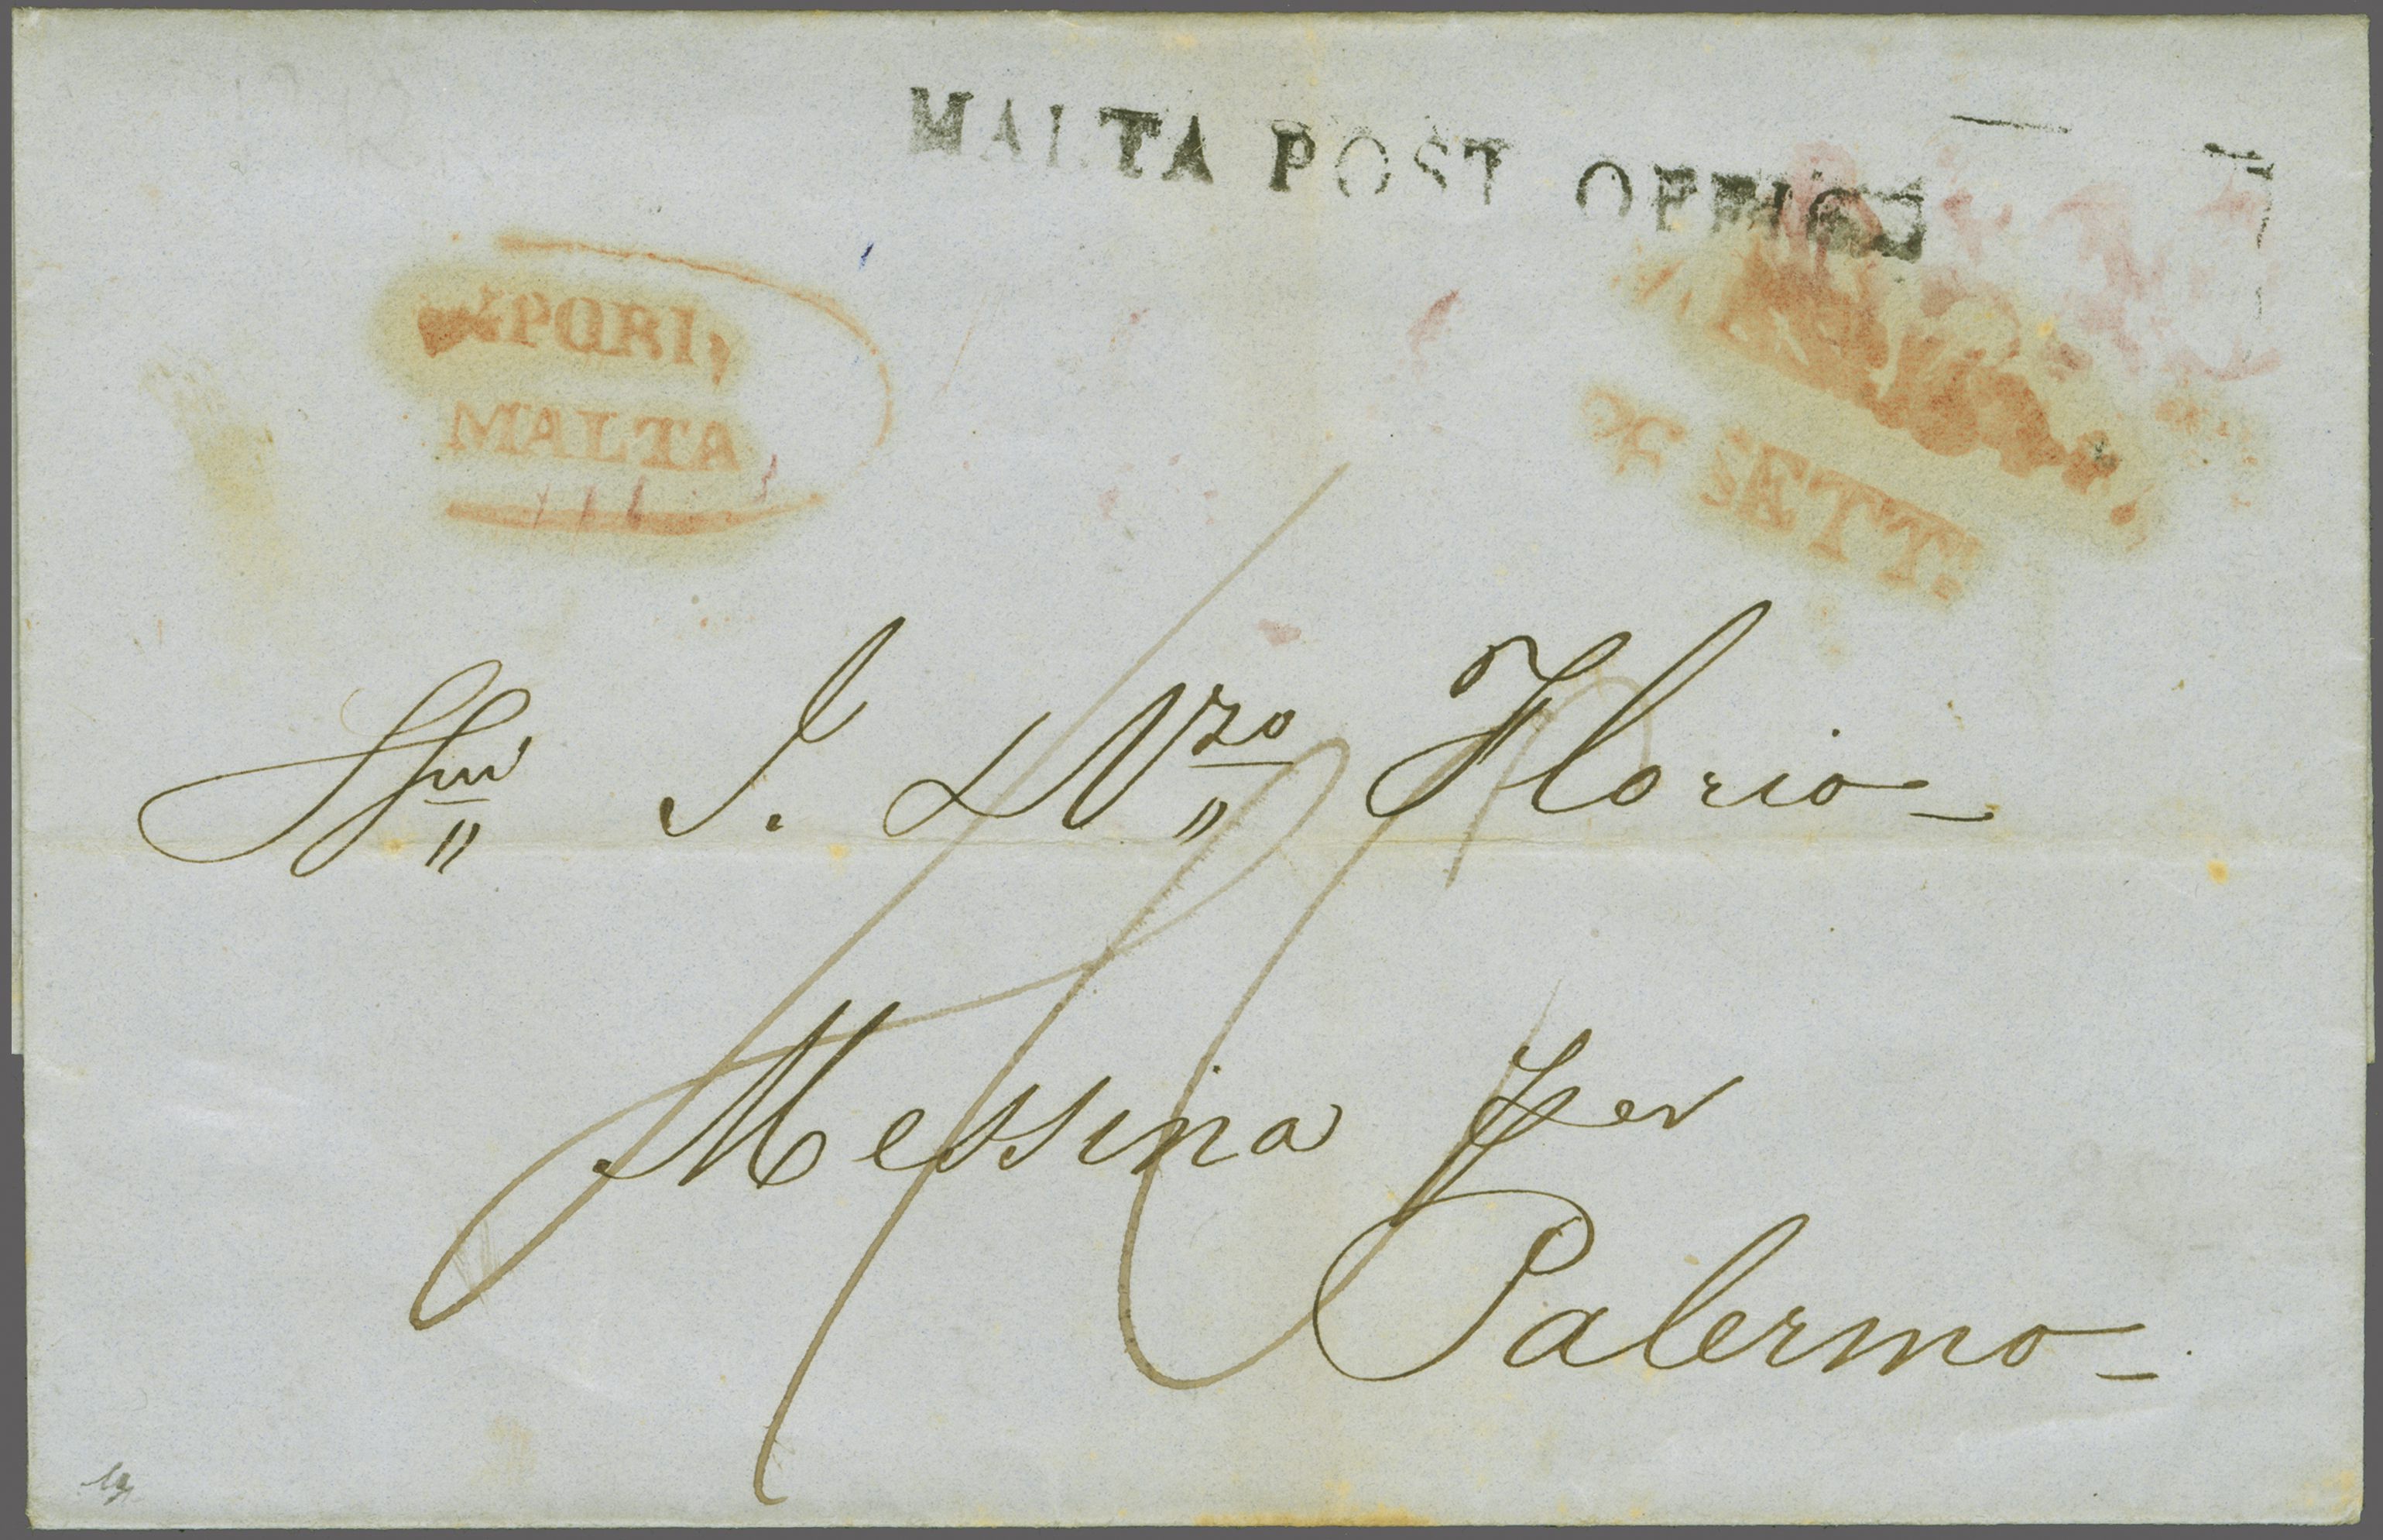 MALTA POST OFFICE
MALTA
SETT.
I. & Vzo Florio
Messina per
Palermo